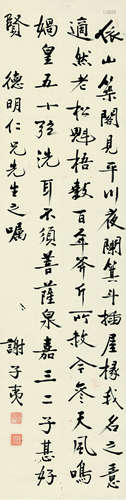 依山築閣見平川夜闌箕斗插屋椽我名之意
適然老松魁梧數百年斧斤所赦今參天風鳴
媧皇五十弦洗耳不須菩薩泉嘉三二子甚好
賢 德明仁兄先生之囑
謝子夷